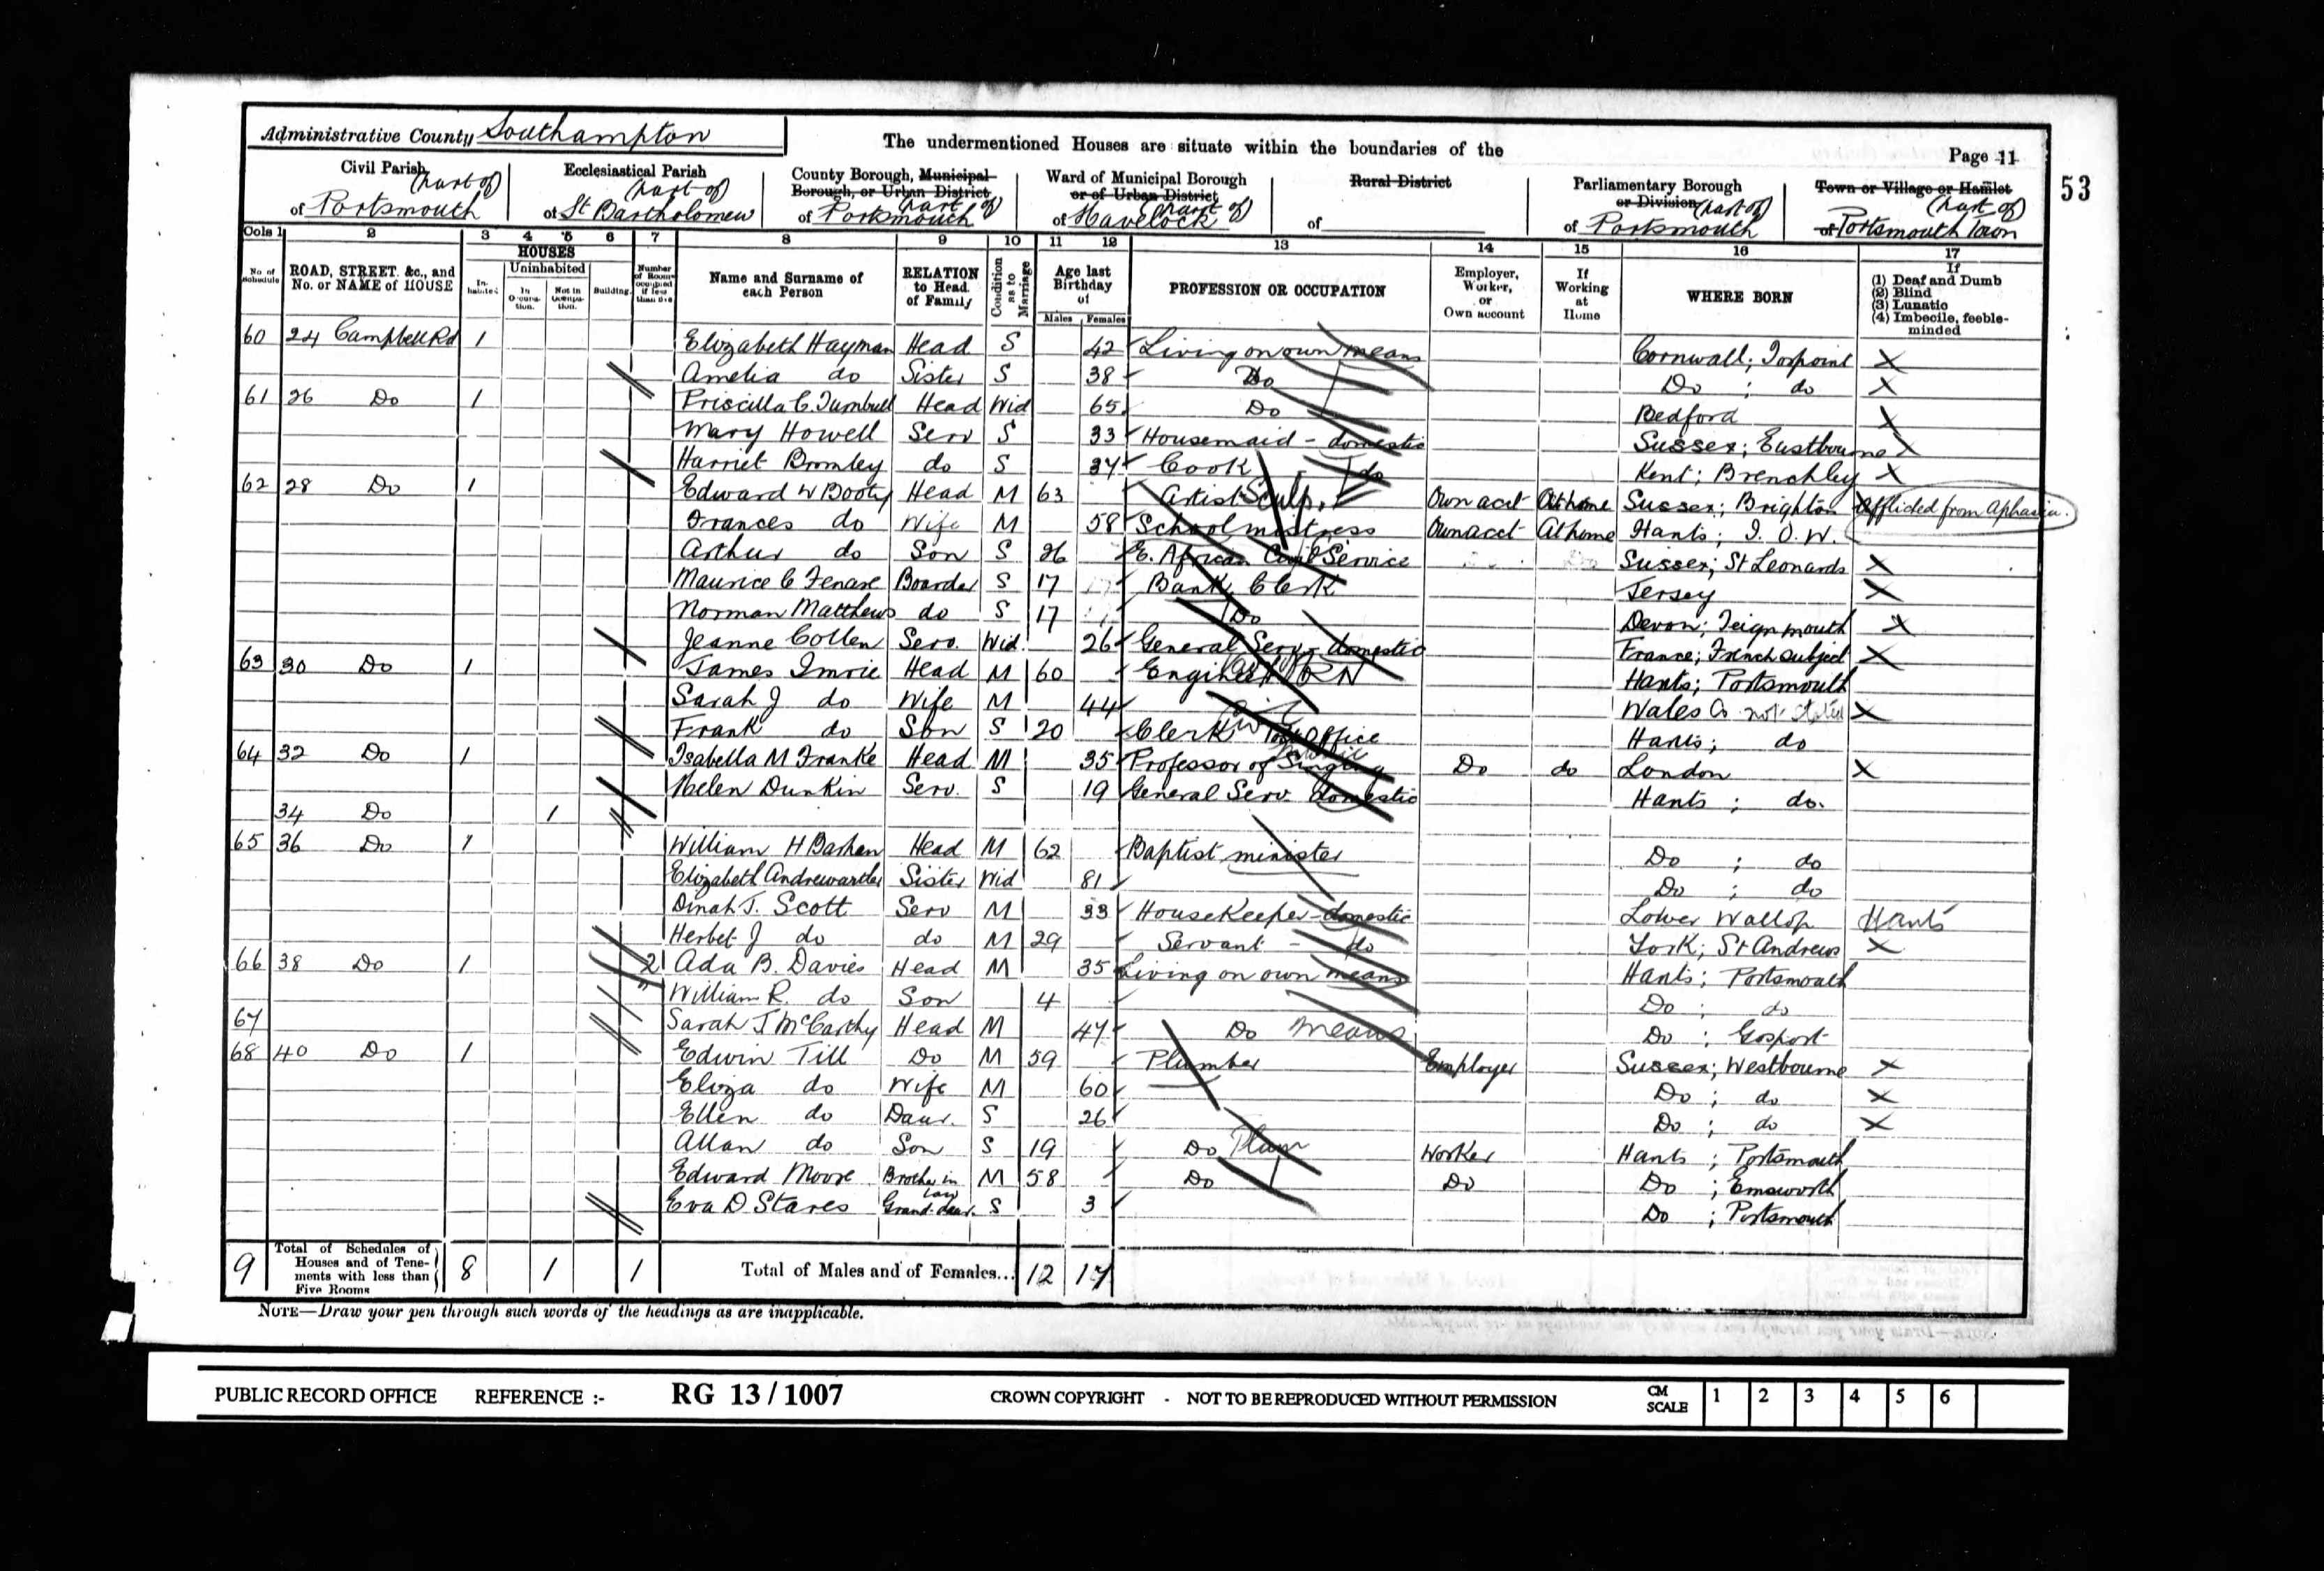 Administrative County Southampton
The undermentioned Houses are situate within the boundaries of the
Page 11
53
Civil Parish (part of) of Portsmouth
Ecclesiastical Parish (part of) of St Bartholomew
County Borough, Municipal Borough, or Urban District (part of) of Portsmouth
Ward of Municipal Borough or of Urban District (part of) of Havelock
Rural District of
Parliamentary Borough or Division (part of) of Portsmouth
Town or Village or Hamlet (part of) of Portsmouth Town
Cols 1 2 3 4 5 6 7 8 9 10 11 12 13 14 15 16 17
No of Schedule
ROAD, STREET, &c., and No. or NAME of HOUSE
HOUSES
In-habited
Uninhabited
In Occupation.
Not in Occupation.
Building.
Number of Rooms occupied if less than five
Name and Surname of each Person
RELATION to Head of Family
Condition as to Marriage
Age last Birthday of
Males Females
PROFESSION OR OCCUPATION
Employer, Worker, or Own account
If Working at Home
WHERE BORN
If (1) Deaf and Dumb (2) Blind (3) Lunatic (4) Imbecile, feeble-minded
60 24 Campbell Rd 1 Elizabeth Hayman Head S 42 Living on own means Cornwall; Torpoint X
Amelia do Sister S 38 Do Do ; do X
61 26 Do 1 Priscilla C. Turnbull Head Wid 65 Do Bedford X
Mary Howell Serv S 33 Housemaid - domestic Sussex; Eastbourne X
Harriet Bromley do S 37 Cook - do Kent; Brenchley X
62 28 Do 1 Edward W Booty Head M 63 Artist Sculp. Own acct At home Sussex; Brighton Afflicted from Aphasia.
Frances do Wife M 58 School mistress Own acct At home Hants; I. O. W.
Arthur do Son S 26 E. African Civil Service Sussex; St Leonards X
Maurice C Boarder S 17 Bank Clerk Jersey X
Norman Matthews do S 17 Do Devon; Teignmouth X
Jeanne Collen Serv. Wid. 26 General Serv - domestic France; French subject X
63 30 Do 1 James Imrie Head M 60 Engineer RN Hants; Portsmouth
Sarah J do Wife M 44 Wales Co not stated X
Frank do Son S 20 Clerk Office Hants; do
64 32 Do 1 Isabella M Franke Head M 35 Professor of Singing Do do London X
Helen Dunkin Serv. S 19 General Serv. domestic Hants ; do.
34 Do 1
65 36 Do 1 William H Head M 62 Baptist minister Do ; do
Elizabeth Andrewartha Sister Wid 81 Do ; do
Dinah J. Scott Serv M 33 HouseKeeper - domestic Lower Wallop Hants
Herbet J do do M 29 Servant - do York; St Andrews X
66 38 Do 1 2 Ada B. Davies Head M 35 Living on own means Hants; Portsmouth
William R. do Son 4 Do ; do
67 Sarah J McCarthy Head M 47 Do means Do ; Gosport
68 40 Do 1 Edwin Till Do M 59 Plumber Employer Sussex; Westbourne X
Eliza do Wife M 60 Do ; do X
Ellen do Daur. S 26 Do ; do X
Allan do Son S 19 Do Plum Worker Hants ; Portsmouth
Edward Moore Brother in law M 58 Do Do Do ; Emsworth
Eva D. Stares Grand-daur. S 3 Do ; Portsmouth
9 Total of Schedules of Houses and of Tenements with less than Five Rooms 8 1 1 Total of Males and of Females... 12 17
NOTE—Draw your pen through such words of the headings as are inapplicable.
PUBLIC RECORD OFFICE REFERENCE :- RG 13 / 1007 CROWN COPYRIGHT - NOT TO BE REPRODUCED WITHOUT PERMISSION CM SCALE 1 2 3 4 5 6